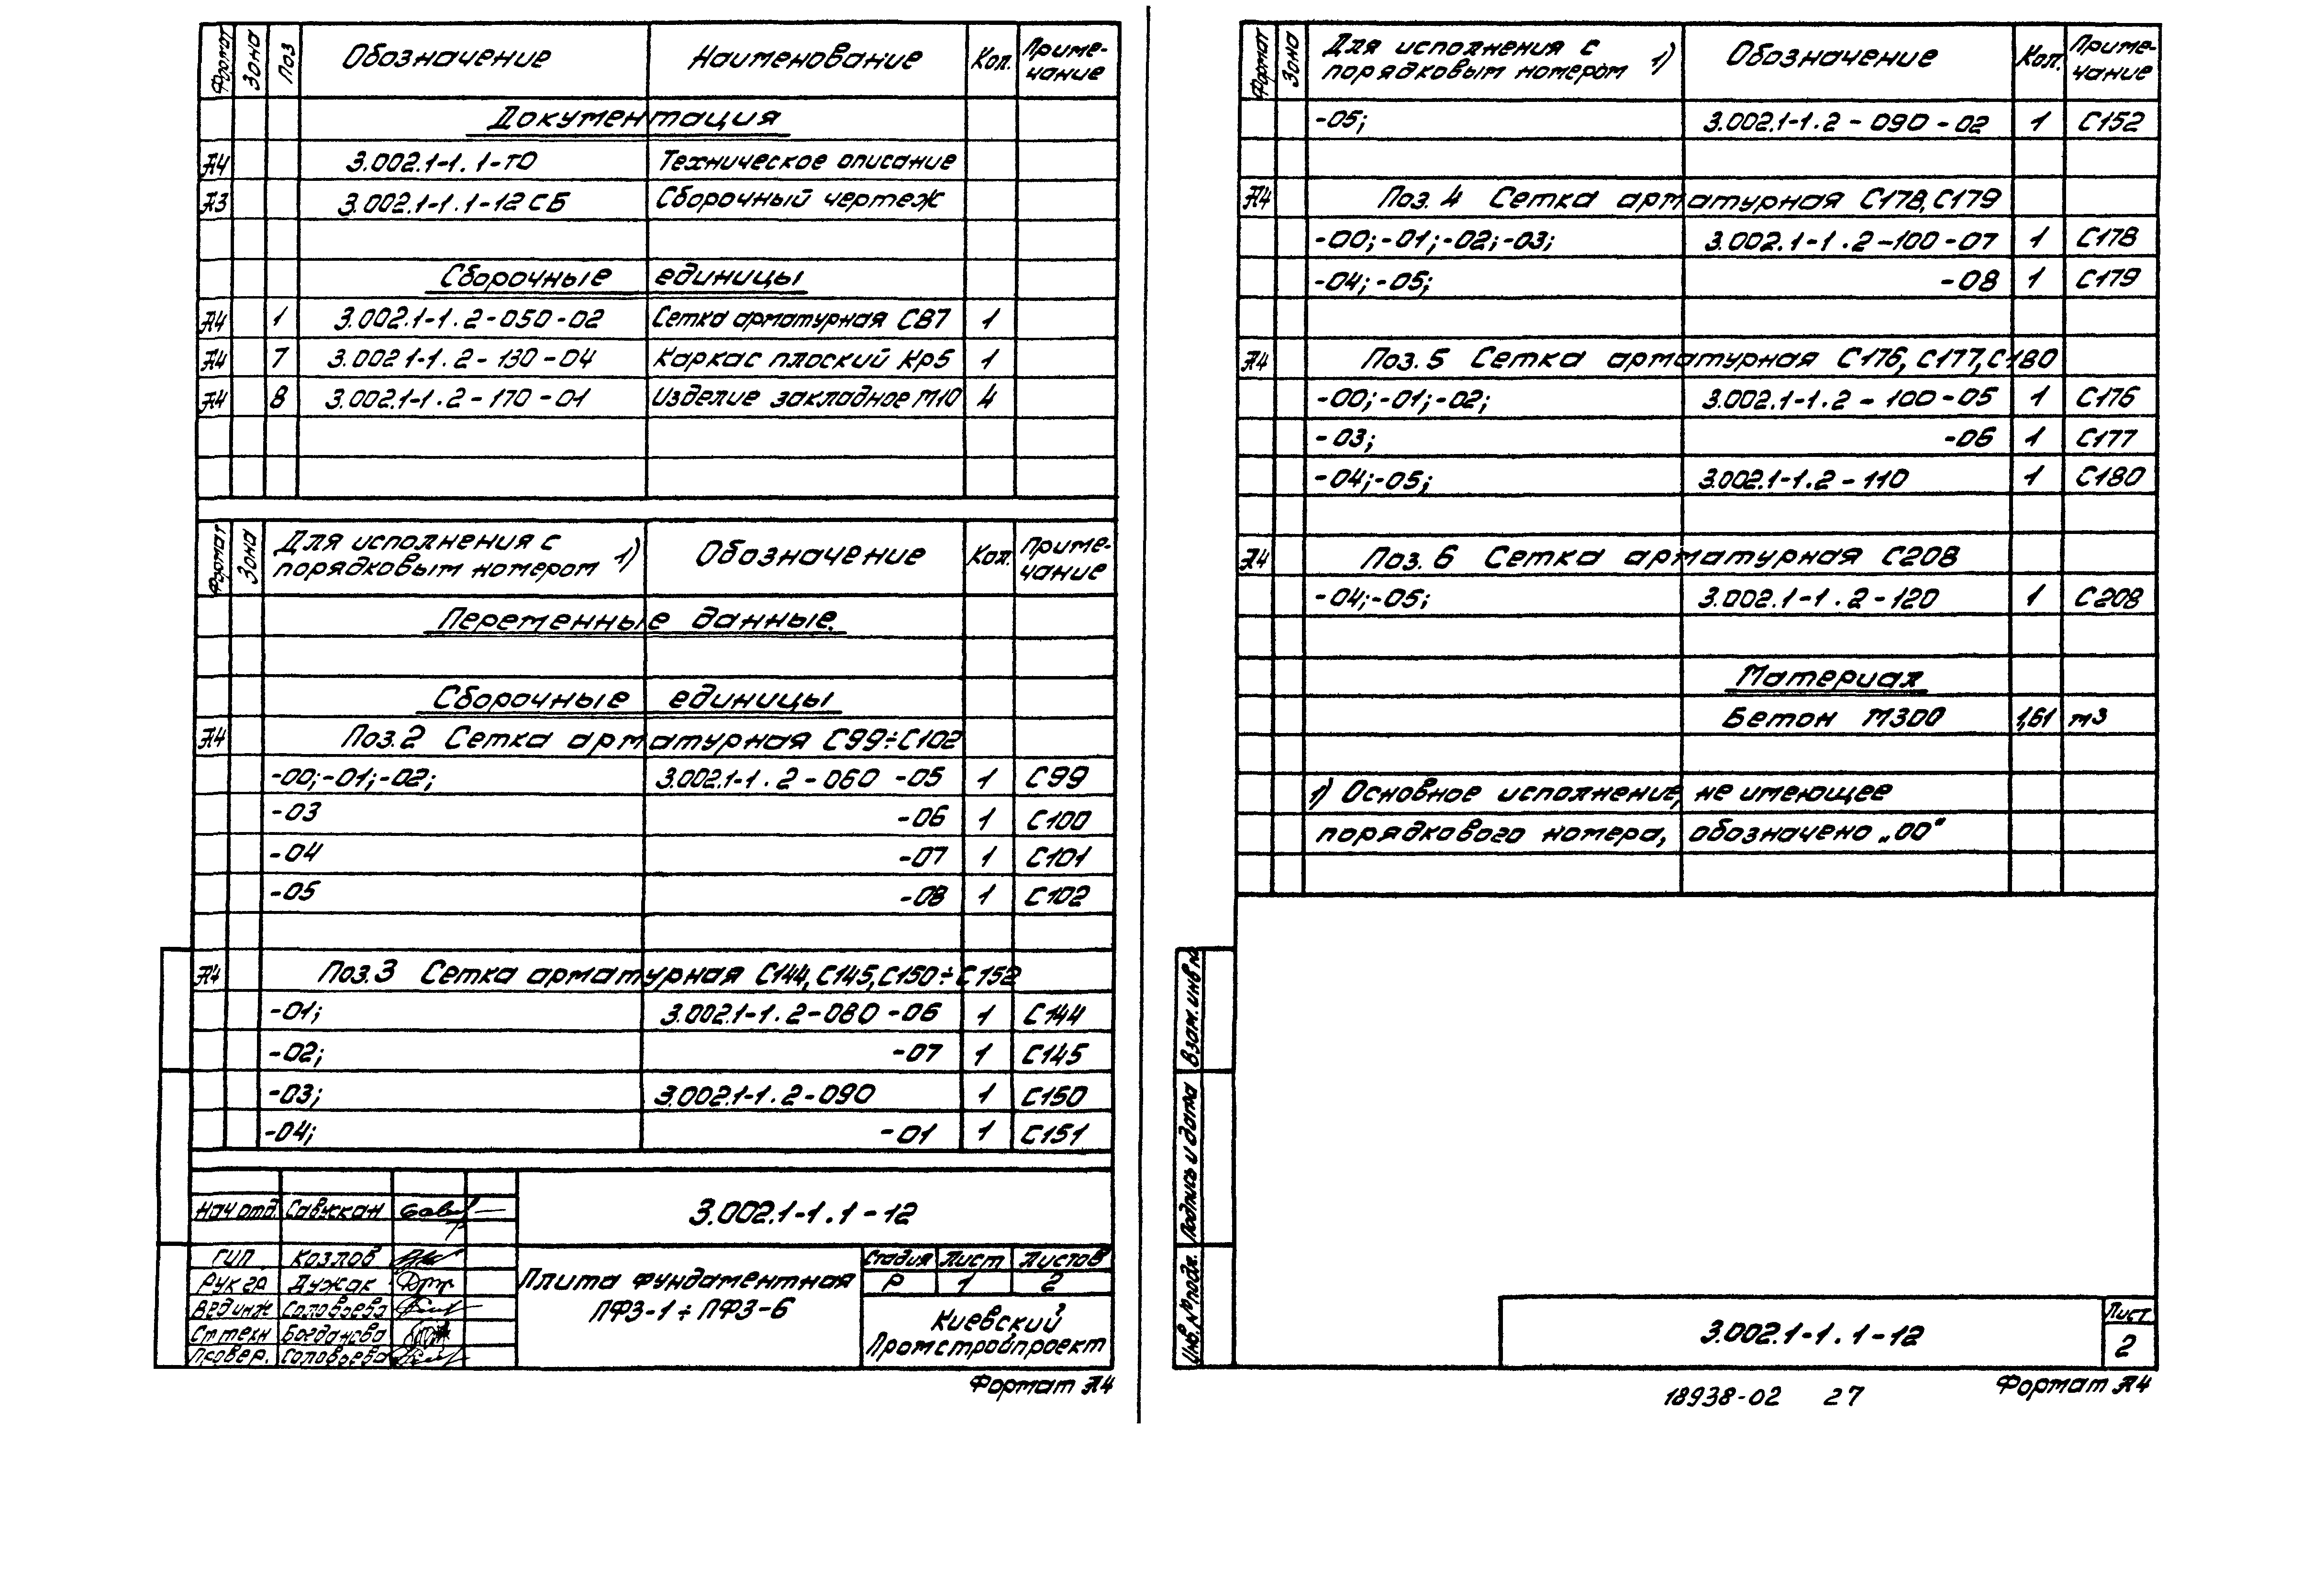 Формат Зона Поз Обозначение Наименование Кол. Приме-
чание
Документация
А4 3.002.1-1.1-ТО Техническое описание
А3 3.002.1-1.1-12СБ Сборочный чертеж
Сборочные единицы
А4 1 3.002.1-1.2-050-02 Сетка арматурная С87 1
А4 7 3.002.1-1.2-130-04 Каркас плоский Кр5 1
А4 8 3.002.1-1.2-170-01 Изделие закладное М10 4
Формат Зона Для исполнения с
порядковым номером 1) Обозначение Кол. Приме-
чание
Переменные данные.
Сборочные единицы
А4 Поз.2 Сетка арматурная С99÷С102
-00;-01;-02; 3.002.1-1.2-060-05 1 С99
-03 -06 1 С100
-04 -07 1 С101
-05 -08 1 С102
А4 Поз.3 Сетка арматурная С144,С145,С150÷С152
-01; 3.002.1-1.2-080-06 1 С144
-02; -07 1 С145
-03; 3.002.1-1.2-090 1 С150
-04; -01 1 С151
Нач отд. Савукан
ГИП Козлов
Рук гр. Дужак
Вед инж Соловьева
Ст техн Богданова
Провер. Соловьева
3.002.1-1.1-12
Плита фундаментная
ПФ3-1÷ПФ3-6
Стадия Лист Листов
Р 1 2
Киевский
Промстройпроект
Формат А4
Формат Зона Для исполнения с
порядковым номером 1) Обозначение Кол. Приме-
чание
-05; 3.002.1-1.2-090-02 1 С152
А4 Поз.4 Сетка арматурная С178,С179
-00;-01;-02;-03; 3.002.1-1.2-100-07 1 С178
-04;-05; -08 1 С179
А4 Поз.5 Сетка арматурная С176,С177,С180
-00;-01;-02; 3.002.1-1.2-100-05 1 С176
-03; -06 1 С177
-04;-05; 3.002.1-1.2-110 1 С180
А4 Поз.6 Сетка арматурная С208
-04;-05; 3.002.1-1.2-120 1 С208
Материал
Бетон М300 1,61 м3
1) Основное исполнение, не имеющее
порядкового номера, обозначено „00"
Взам. инв №
Подпись и дата
Инв. № подл.
3.002.1-1.1-12
Лист
2
18938-02 27
Формат А4